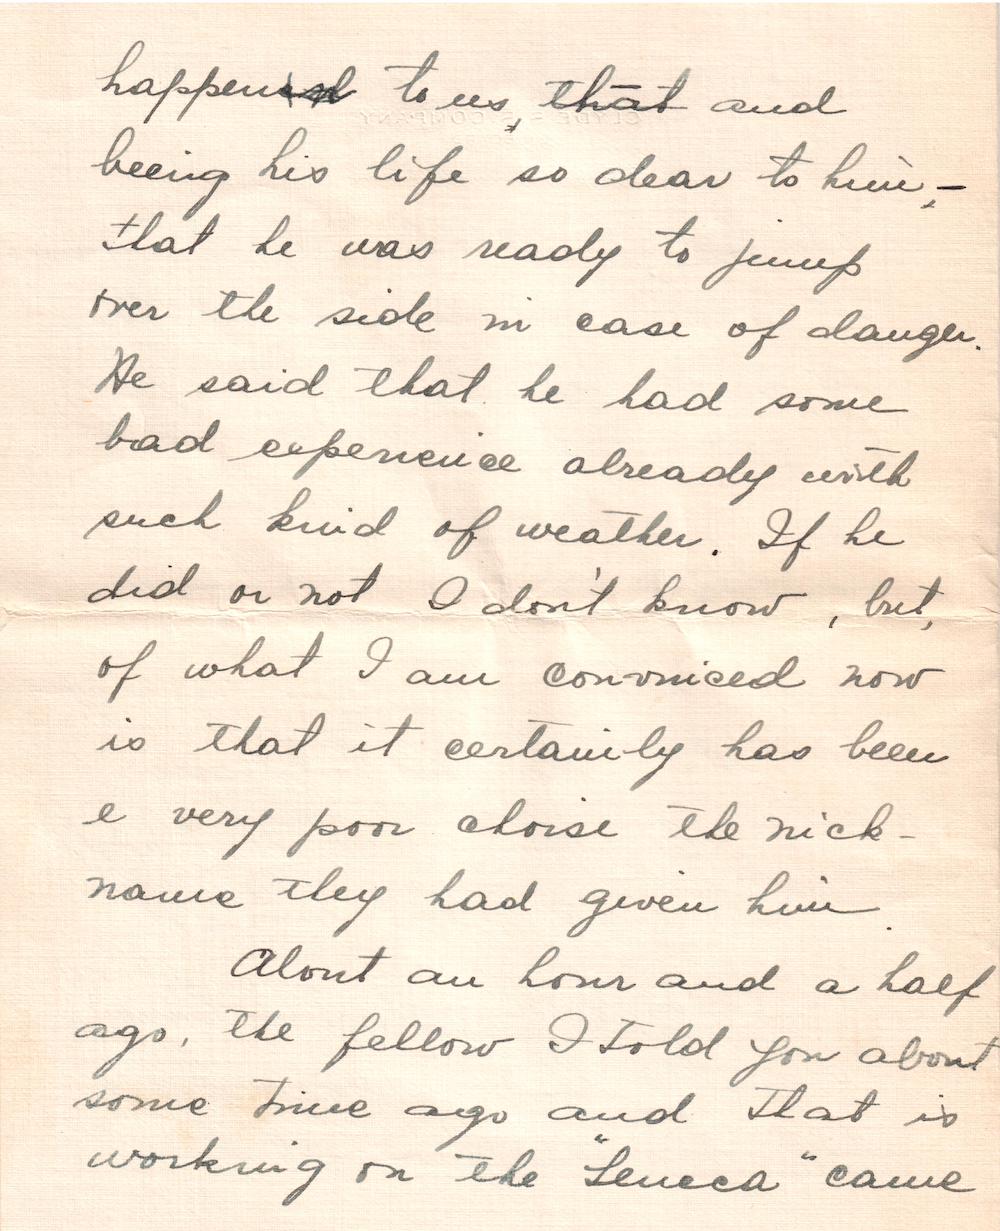 happened to us, that and
being his life so dear to him, –
that he was ready to jump
over the side in case of danger.
He said that he had some
bad experience already with
such kind of weather. If he
did or not I don't know, but,
of what I am convinced now
is that it certainly has been
e very poor choise the nick-
name they had given him.
About an hour and a half
ago, the fellow I told you about
some time ago and that is
working on the "Seneca" came